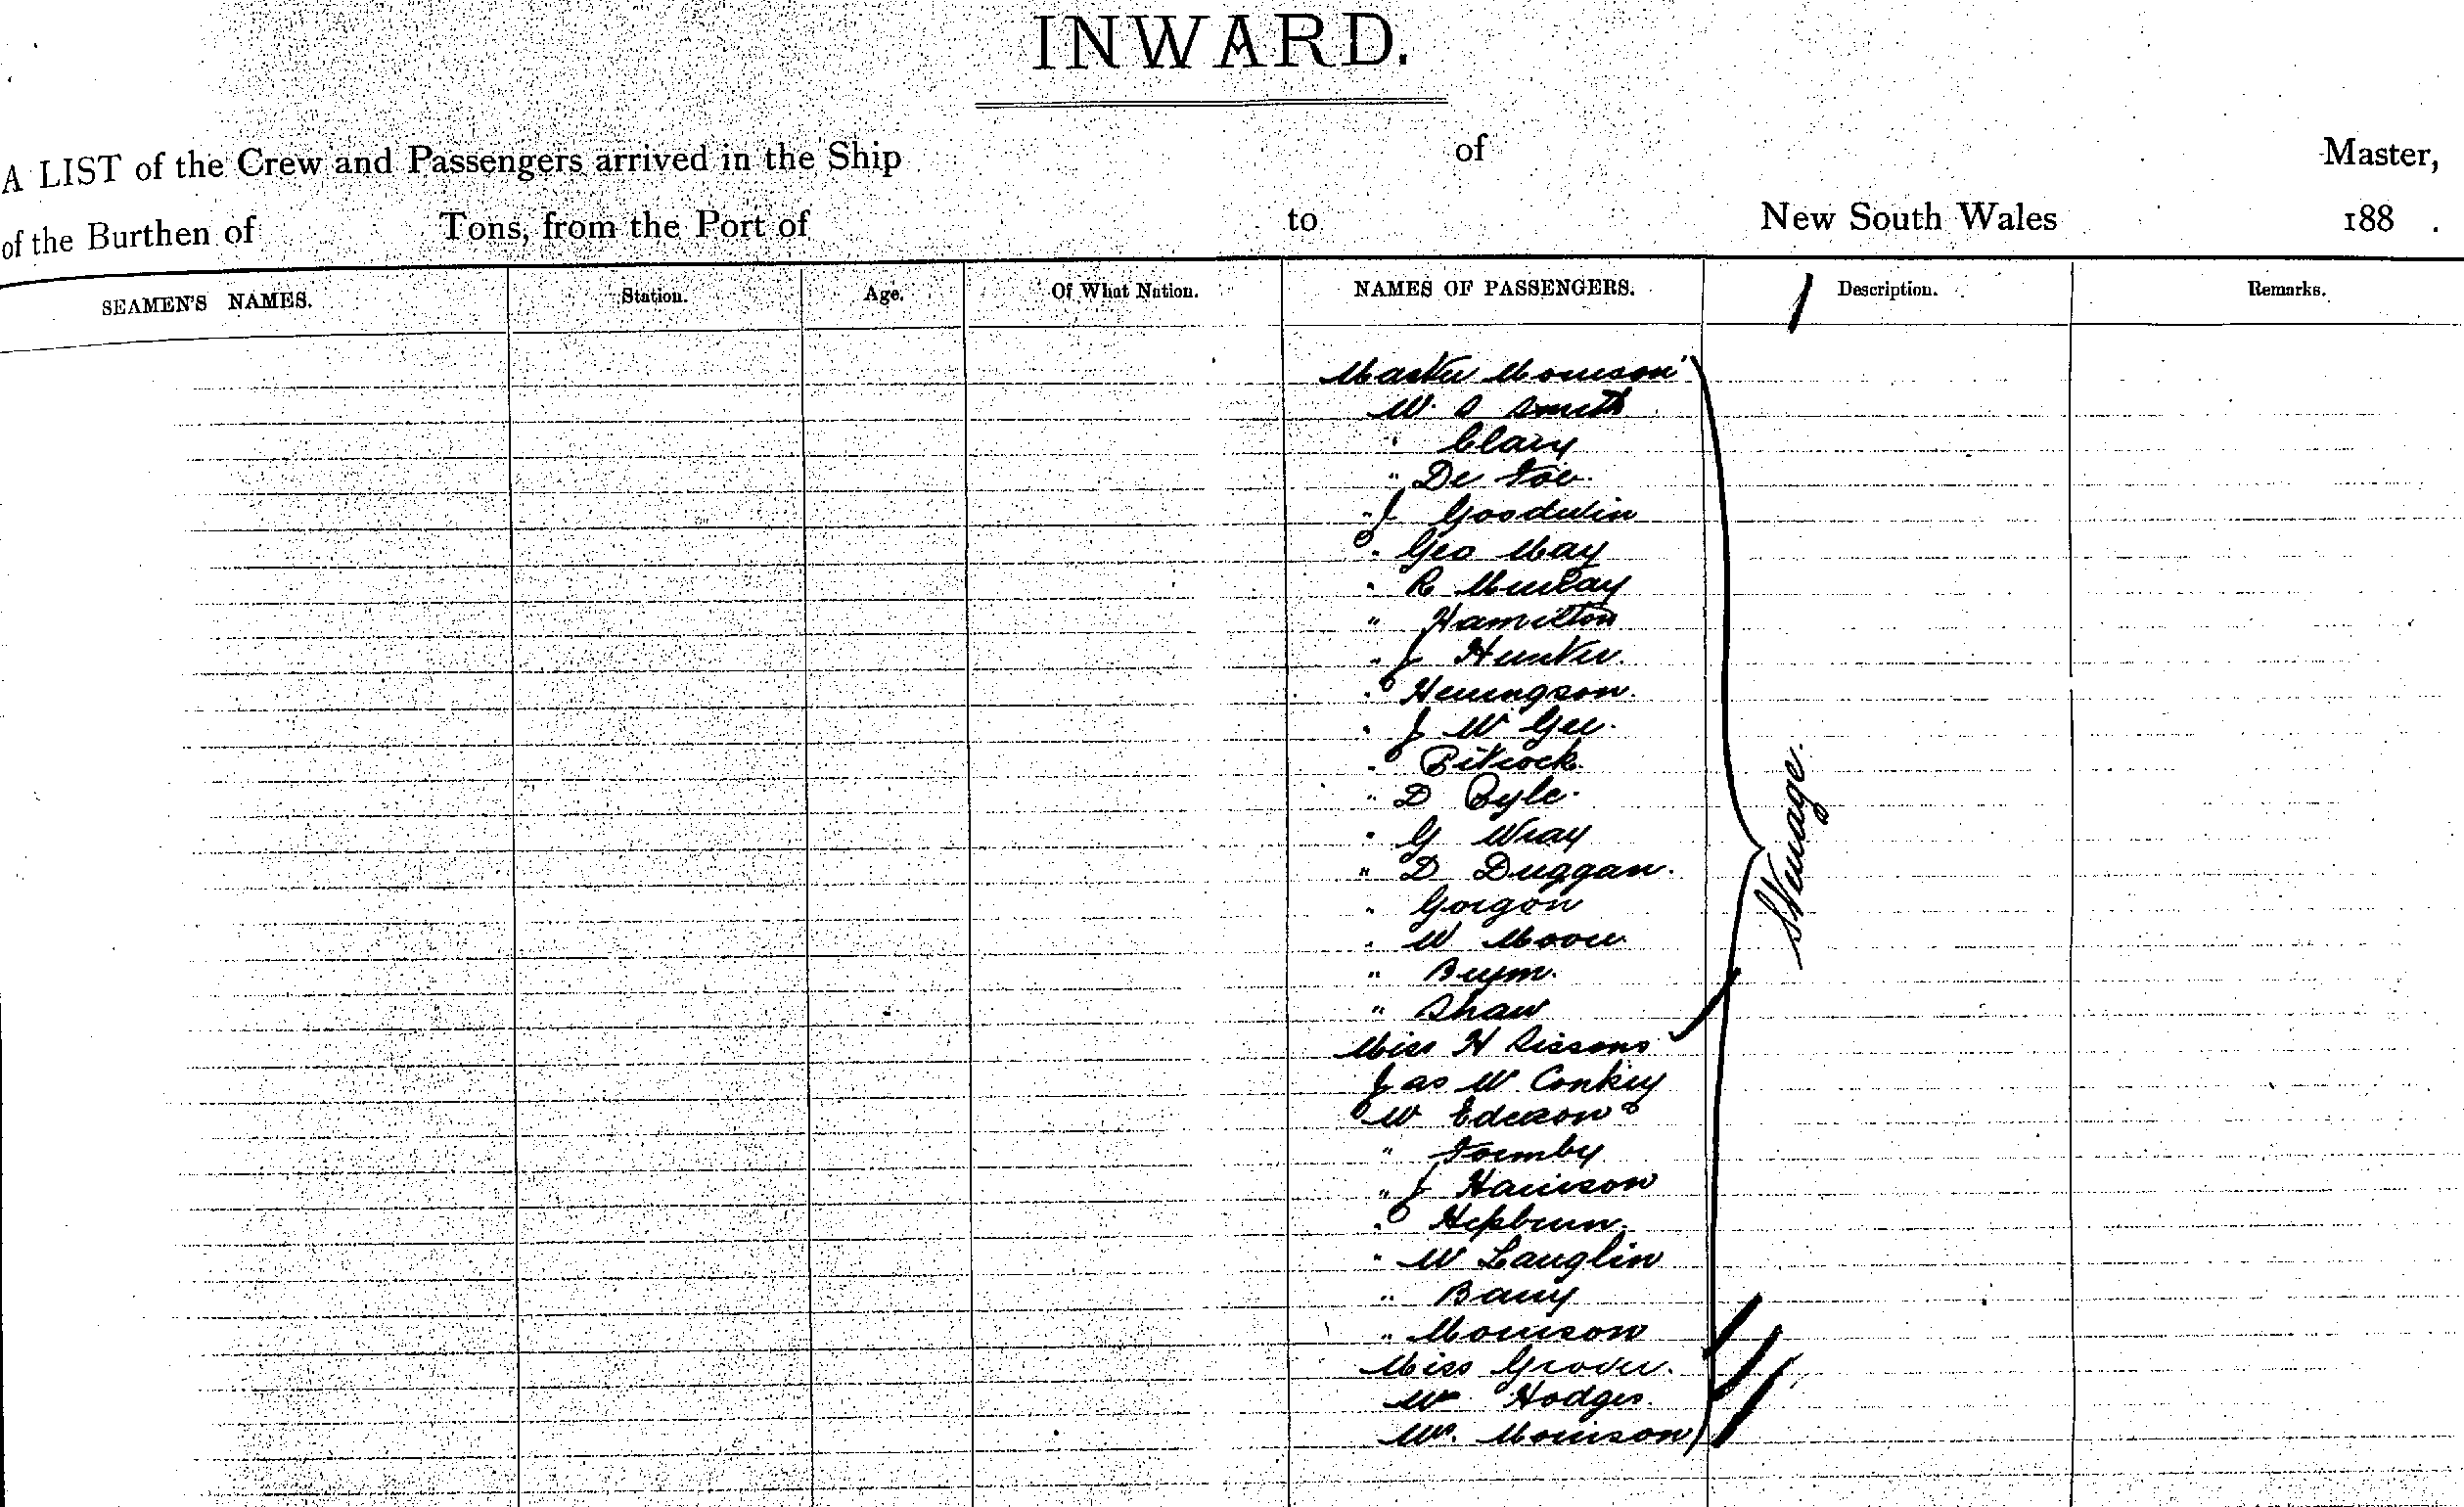 INWARD.
A LIST of the Crew and Passengers arrived in the Ship of Master,
of the Burthen of Tons, from the Port of to New South Wales 188 .
SEAMEN'S NAMES. Station. Age. Of What Nation. NAMES OF PASSENGERS. Description. Remarks.
Master Morrison
Mr. S Smith
" Clary
" De Foe.
" J Goodwin
" Geo May
" R Murray
" Hamilton
" J Hunter.
" Henningson.
" J W Gee.
" Pitcock.
" D Pyle.
" G Wray
" D Duggan.
" Gorgon
" W Moore
" Brym.
" Shaw
Steerage.
Miss H Sissons
Jas Mc Conkey
Mr Ederson
" Formby
" J Harrison
" Hepburn.
" Mc Lauglin
" Barry
" Morrison
Miss Grover.
Mr Hodges.
Mr. Morrison